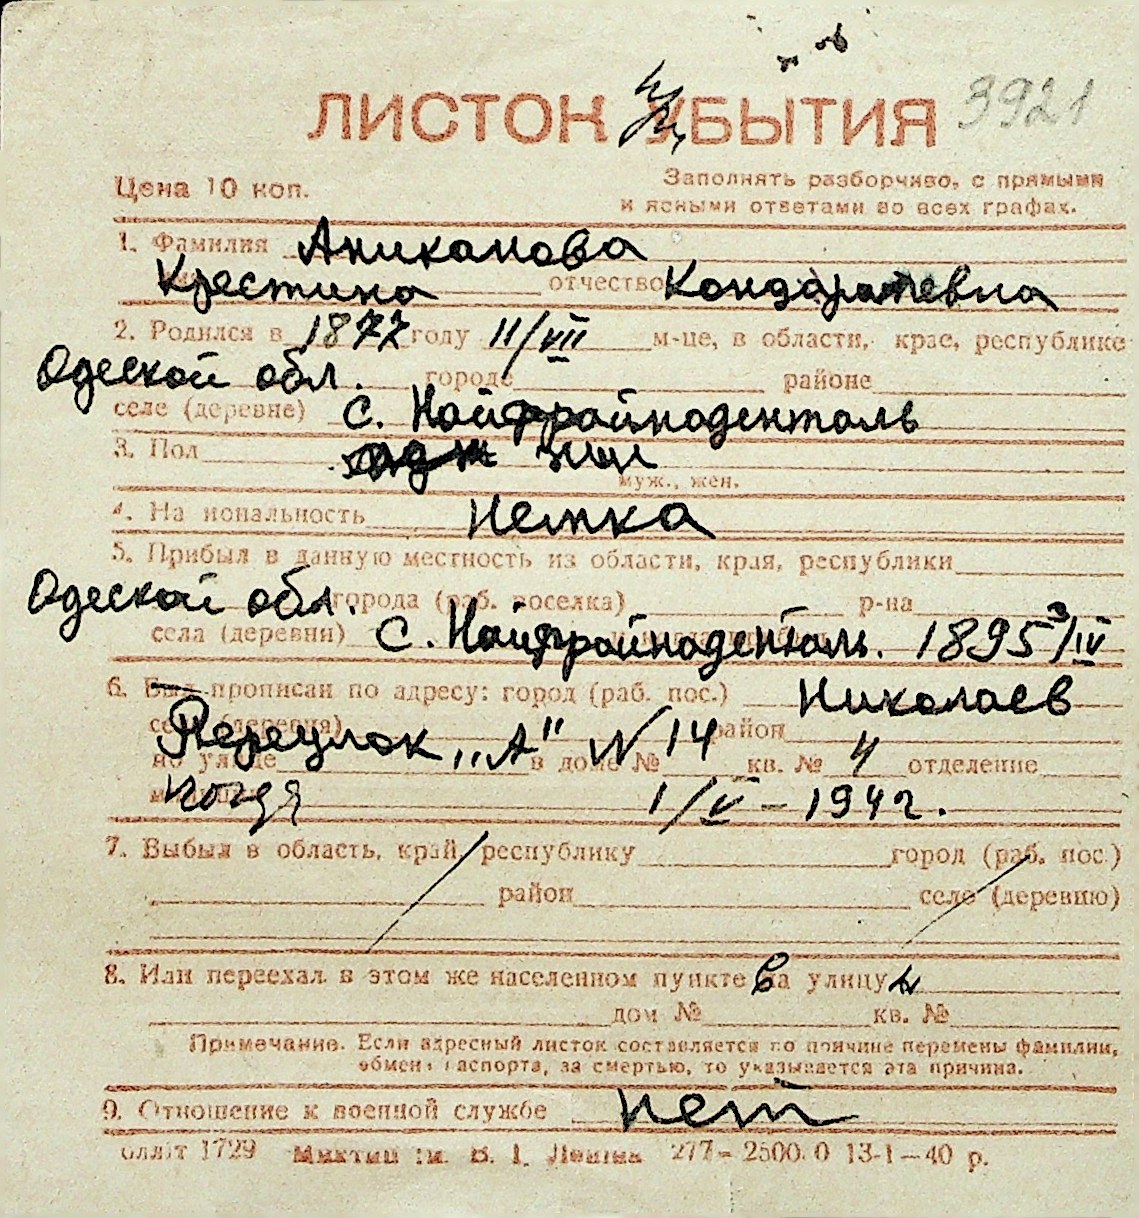 3921
ЛИСТОК УБЫТИЯ
Цена 10 коп.
Заполнять разборчиво, с прямыми
и ясными ответами во всех графах.
1. Фамилия Аниканова
Крестина отчество Кондаратевна
2. Родился в 1877 году 11/VII м-це, в области, крае, республике
Одеской обл. городе районе
селе (деревне) с. Найфрайноденталь
3. Пол жен
муж., жен.
4. На иональность Немка
5. Прибыл в данную местность из области, края, республики
Одеской обл. города (раб. поселка) р-на
села (деревни) с. Найфрайноденталь. 1895 3/IV
6. Был прописан по адресу: город (раб. пос.) Николаев
село (деревня) район
Переулок „А" N 14
по улице в доме № кв. № 4 отделение
когда 1/V-1942.
7. Выбыл в область, край, республику город (раб. пос.)
район село (деревню)
8. Или переехал в этом же населенном пункте на улицу
дом № кв. №
Примечание. Если адресный листок составляется по причине перемены фамилии,
обмена паспорта, за смертью, то указывается эта причина.
9. Отношение к военной службе нет
1729 277-2500.0 13-1-40 р.